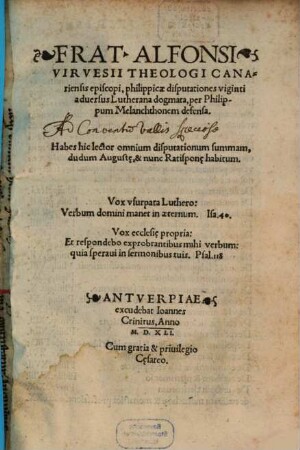 FRAT. ALFONSI
VIRVESII THEOLOGI CANA-
riensis episcopi, philippicæ disputationes viginti
aduersus Lutherana dogmata, per Philip-
pum Melanchthonem defensa.
Ad Conventũ Vallis speciosæ
Habes hic lector omnium disputationum summam,
dudum Augustę, & nunc Ratisponę habitum.
Vox vsurpata Luthero:
Verbum domini manet in æternum. Isa.40.
Vox ecclesię propria:
Et respondebo exprobrantibus mihi verbum:
quia speraui in sermonibus tuis. Psal.118
ANTVERPIAE
excudebat Ioannes
Crinitus, Anno
M. D. XLI.
Cum gratia & priuilegio
Cęsareo.